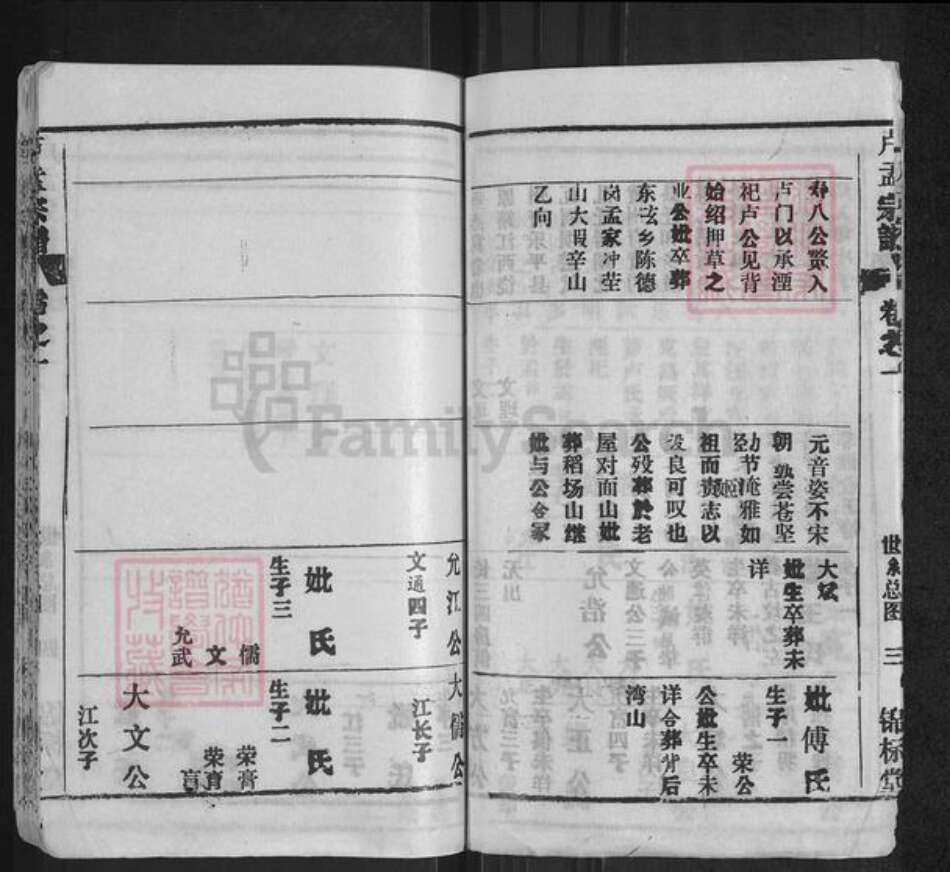 卢孟宗谱
卷之一
世系总图
三
锦标堂
寿八公赘入
卢门以承湮
祀卢公见背
始绍押草之
业公妣卒葬
东玹乡陈德
岗孟家冲茔
山大嘏辛山
乙向
元音姿不宋
朝 孰尝苍坚
劲节淹雅如
祖而赍志以
殁良可叹也
公殁葬於老
屋对面山妣
葬稻场山继
妣与公合冢
大斌
妣生卒葬未
详
妣傅氏
生子一
荣公
公妣生卒未
详合葬背后
湾山
允江公
文通四子
妣氏
生子三
儒
文
允武
大儒公
江长子
妣氏
生子二
荣膏
荣育
大文公
江次子
FamilySearch